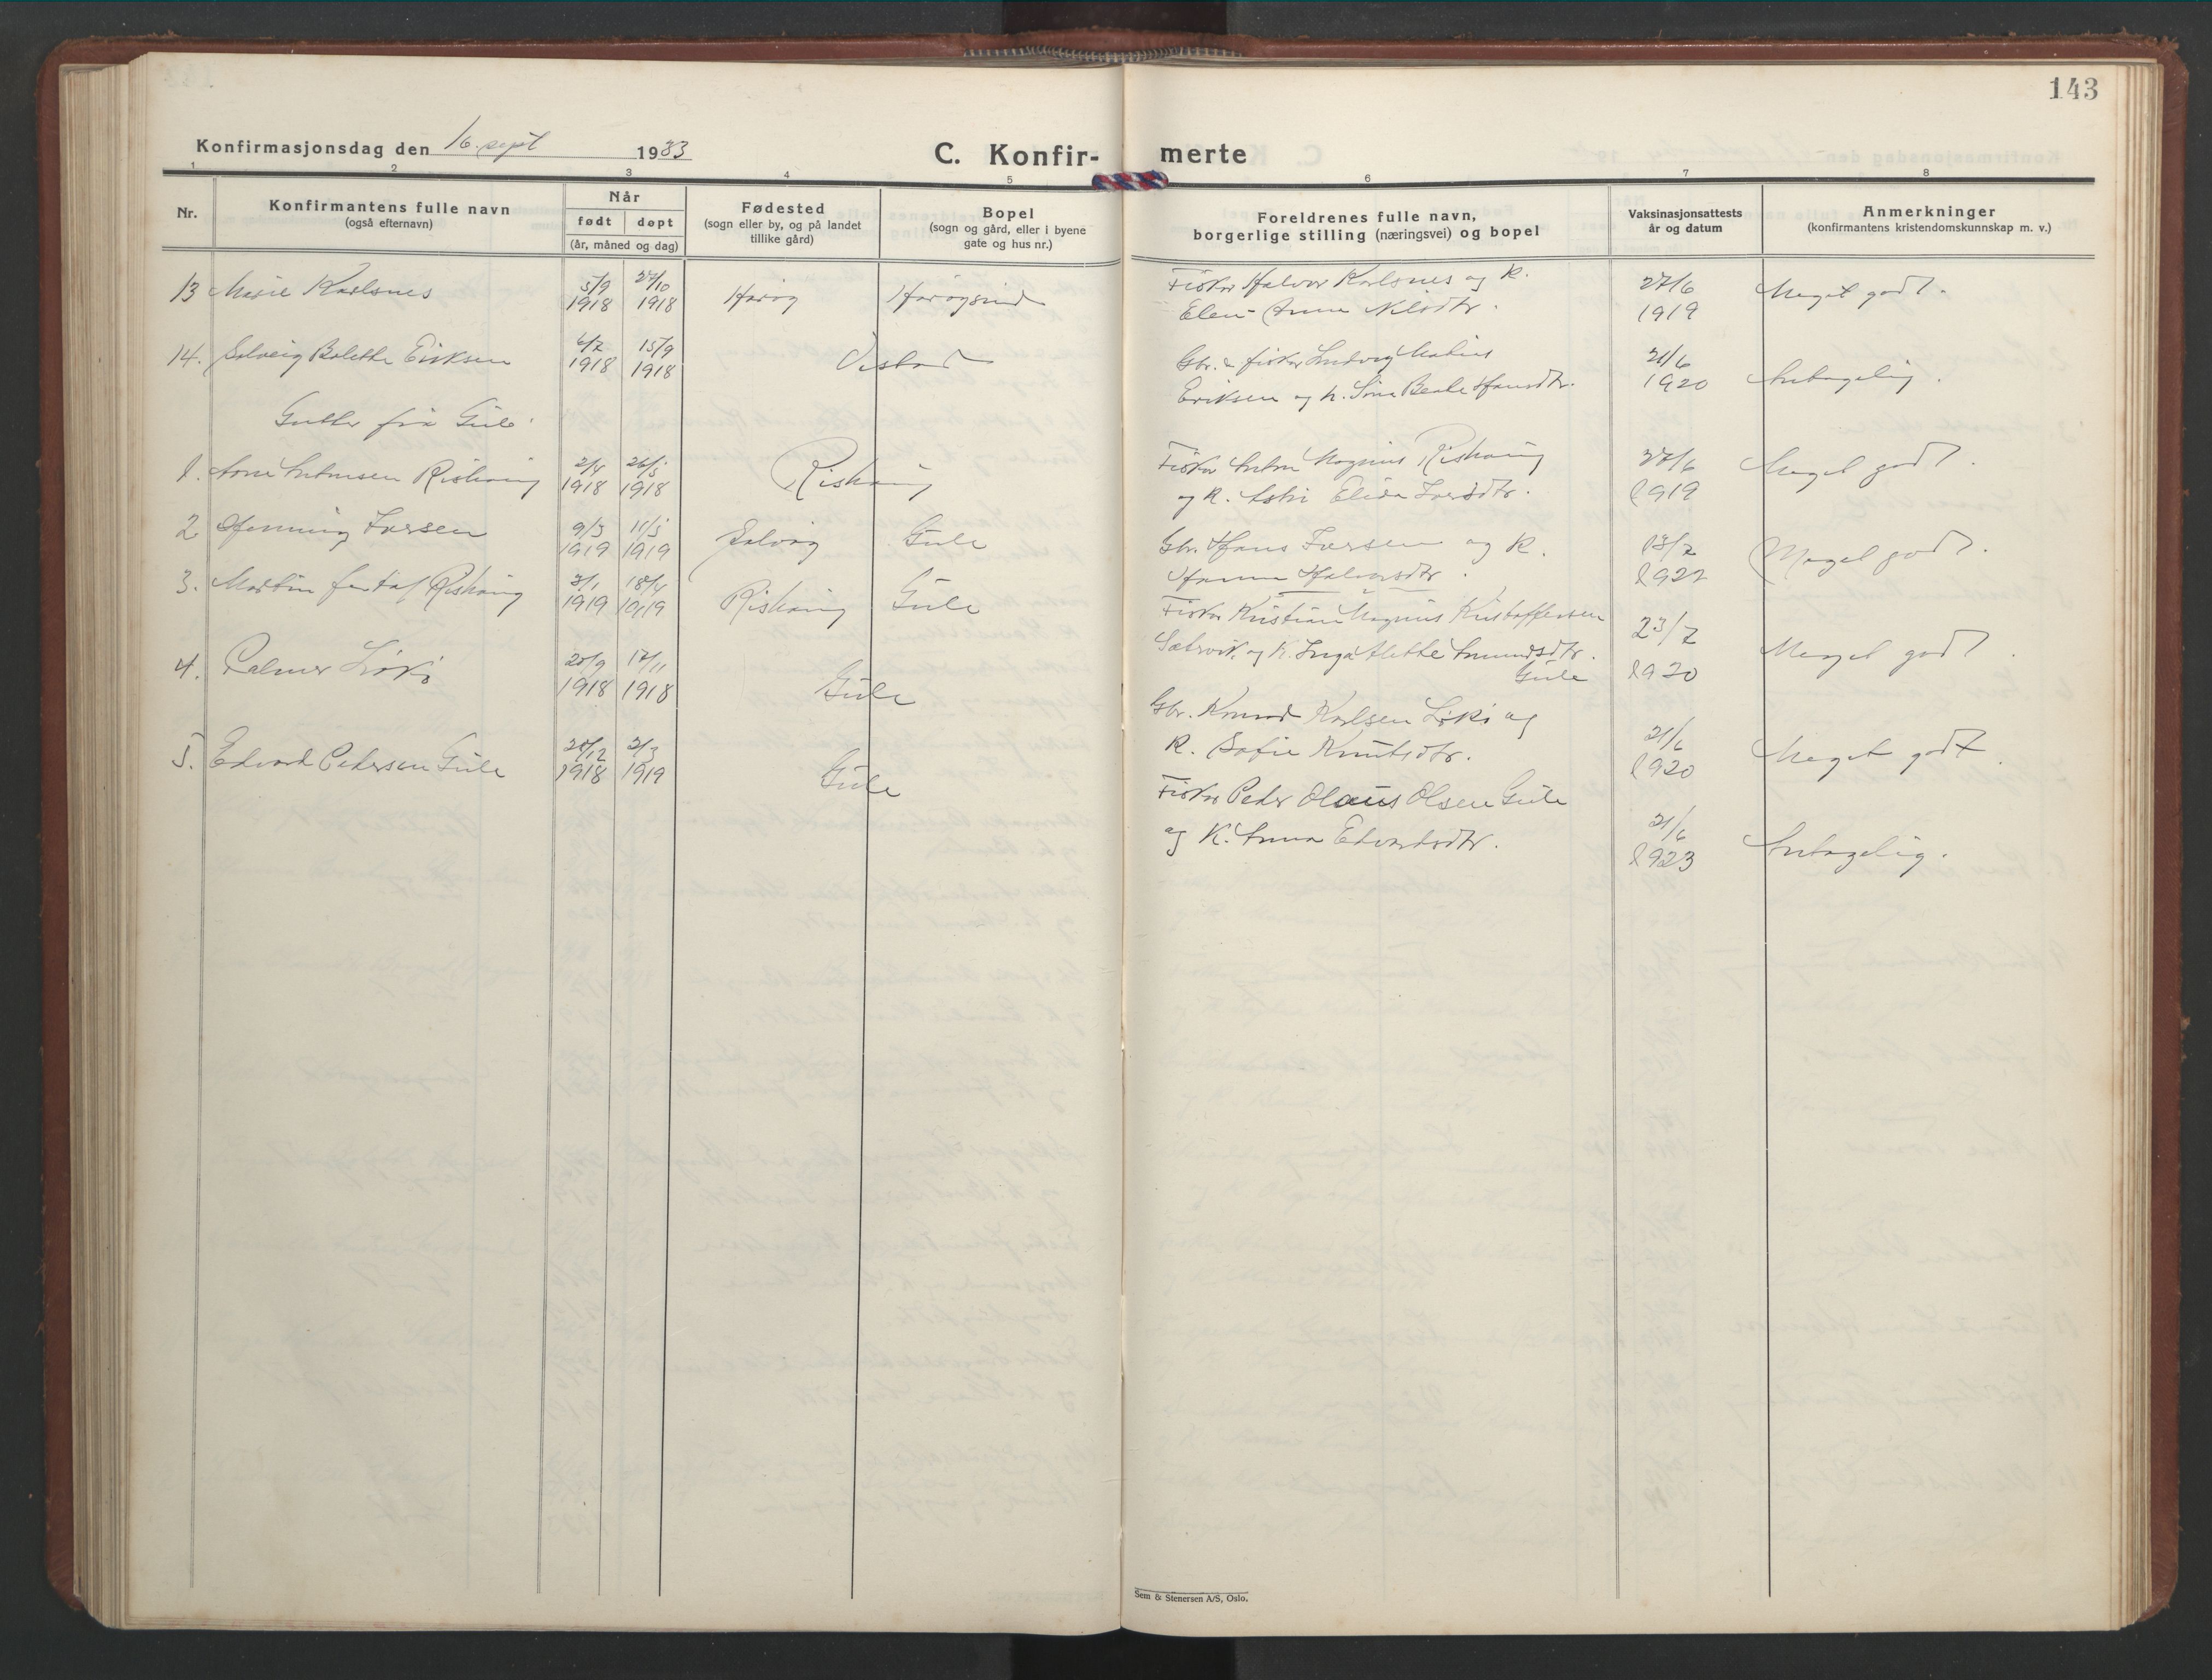 143
Konfirmasjonsdag den 16. sept 1933
C. Konfir- merte
1 2 3 4 5 6 7 8
Nr.
Konfirmantens fulle navn
(også efternavn)
Når
født døpt
(år, måned og dag)
Fødested
(sogn eller by, og på landet
tillike gård)
Bopel
(sogn og gård, eller i byene
gate og hus nr.)
Foreldrenes fulle navn,
borgerlige stilling (næringsvei) og bopel
Vaksinasjonsattests
år og datum
Anmerkninger
(konfirmantens kristendomskunnskap m. v.)
13 Marie Karlsnes 5/9 1918 27/10 1918 Harøy Harøysund
Fisker Halvor Karlsnes og K.
Elen Anna Nilsdtr.
27/6 1919 Meget godt.
14. Solveig Bolette Eriksen 6/7 1918 15/9 1918
Gbr. & fisker Ludvig Matius
Eriksen og h. Sina Beate Hansdtr.
21/6 1920 Antagelig.
Gutter fra Gule.
1. Arne Antonsen Rishaug 2/4 1918 26/5 1918 Rishaug
Fisker Anton Magnus Rishaug
og K. Astri Elida Iversdtr.
27/6 1919 Meget godt.
2 Henning Iversen 9/3 1919 11/5 1919 Solvåg Gule
Gbr. Hans Iversen og K.
Hanna Halvorsdtr.
13/7 1922 Meget godt.
3. Martin Rishaug 3/1 1919 18/4 1919 Rishaug Gule
Fisker Kristian Magnus Kristoffersen
Sætervik og K. Inga Alette Amundsdtr.
Gule
23/7 1920 Meget godt.
4. Palmer Løki 20/9 1918 17/11 1918 Gule
Gbr. Konrad Karlsen Løki og
K. Sofie Knutsdtr.
21/6 1920 Meget godt.
5. Edvard Petersen Gule 20/12 1918 2/3 1919 Gule
Fisker Peder Olaus Olsen Gule
og K. Anna Edvardsdtr.
21/6 1923 Antagelig.
Sem & Stenersen A/S, Oslo.